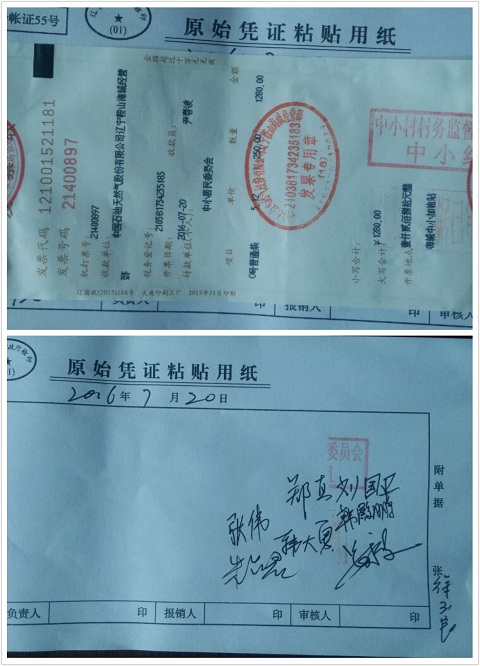 帐证55号
(01)
原始凭证粘贴用纸
金额超过十万元无效
发票代码 121001521181
发票号码 21400897
机打票号: 21400897
收款单位: 中国石油天然气股份有限公司辽宁鞍山海城经营
部
税务登记号: 210381734236183
收款员: 尹春波
开票日期: 2016-07-20
付款单位(个人): 中小居民委员会
项目 单价 数量 金额
0号普通柴 250.00 1280.00
小写合计: ￥1280.00
大写合计: 壹仟贰佰捌拾元整
开票地点: 海城中小加油站
210381734236183
发票专用章
中小村村务监督
中小
负责人 印 报销人 印 审核人
(01)
原始凭证粘贴用纸
2016年7月20日
委员会
附单据
郑直 刘国平
张伟 韩大勇
张
负责人 印 报销人 印 审核人 印